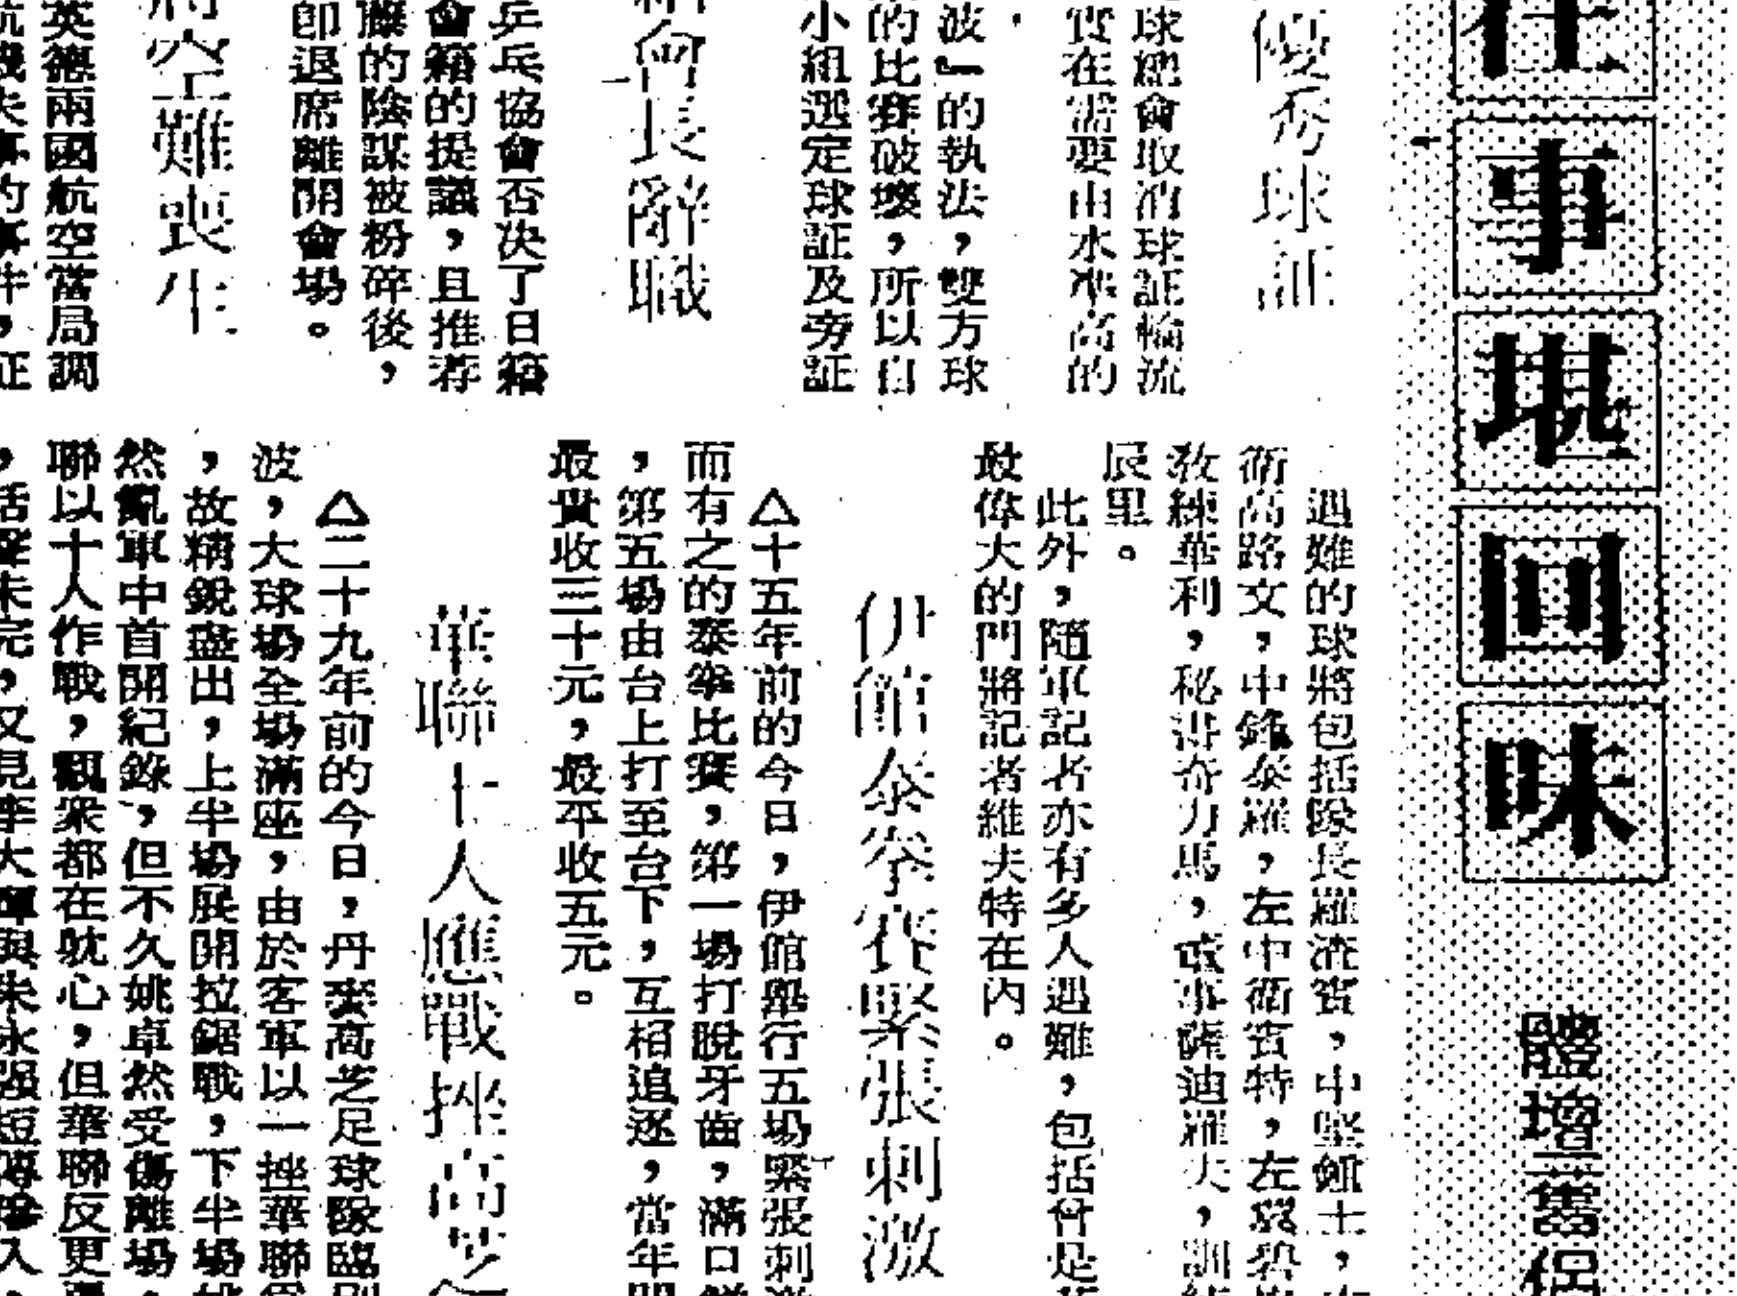 往事堪回味
體壇舊侶
優秀球証
球總會取消球証輪流
實在需要由水準高的
波』的執法，雙方球
的比賽破壞，所以自
小組選定球証及旁証
會長辭職
乒乓協會否决了日籍
會籍的提議，且推荐
藤的陰謀被粉碎後，
即退席離開會場。
空難喪生
英德兩國航空當局調
遇難的球將包括隊長羅渣賓，中堅
衛高路文，中鋒泰羅，左中衛賓特，左翼碧
教練華利，秘書奇力馬，董事薩迪羅夫，訓練
辰里。
此外，隨軍記者亦有多人遇難，包括曾是英
最偉大的門將記者維夫特在內。
伊館泰拳賽緊張刺激
△十五年前的今日，伊館舉行五場緊張刺激
而有之的泰拳比賽，第一場打脫牙齒，滿口鮮
，第五場由台上打至台下，互相追逐，當年門
最貴收三十元，最平收五元。
華聯十人應戰挫高芝
△二十九年前的今日，丹麥高芝足球隊臨別
波，大球場全場滿座，由於客軍以一挫華聯
，故精銳盡出，上半場展開拉鋸戰，下半場姚
然亂軍中首開紀錄，但不久姚卓然受傷離場，
聯以十人作戰，觀衆都在躭心，但華聯反更
，話聲未完，又見李大輝與朱永强短傳滲入，